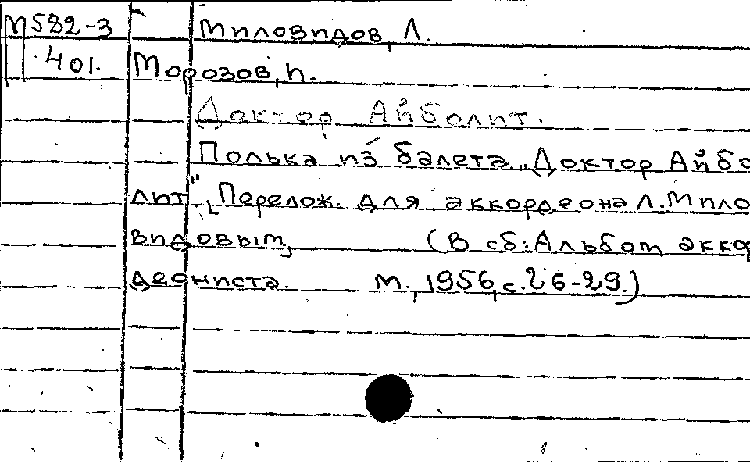 М582-3 Миловидов, Л.
401. Морозов, И.
Доктор Айболит.
Полька из балета „Доктор Айбо
лит“, Перелож. для аккордеона Л. Мило
видовым, (В сб: Альбом аккор
деониста. М., 1956, с. 26-29.)